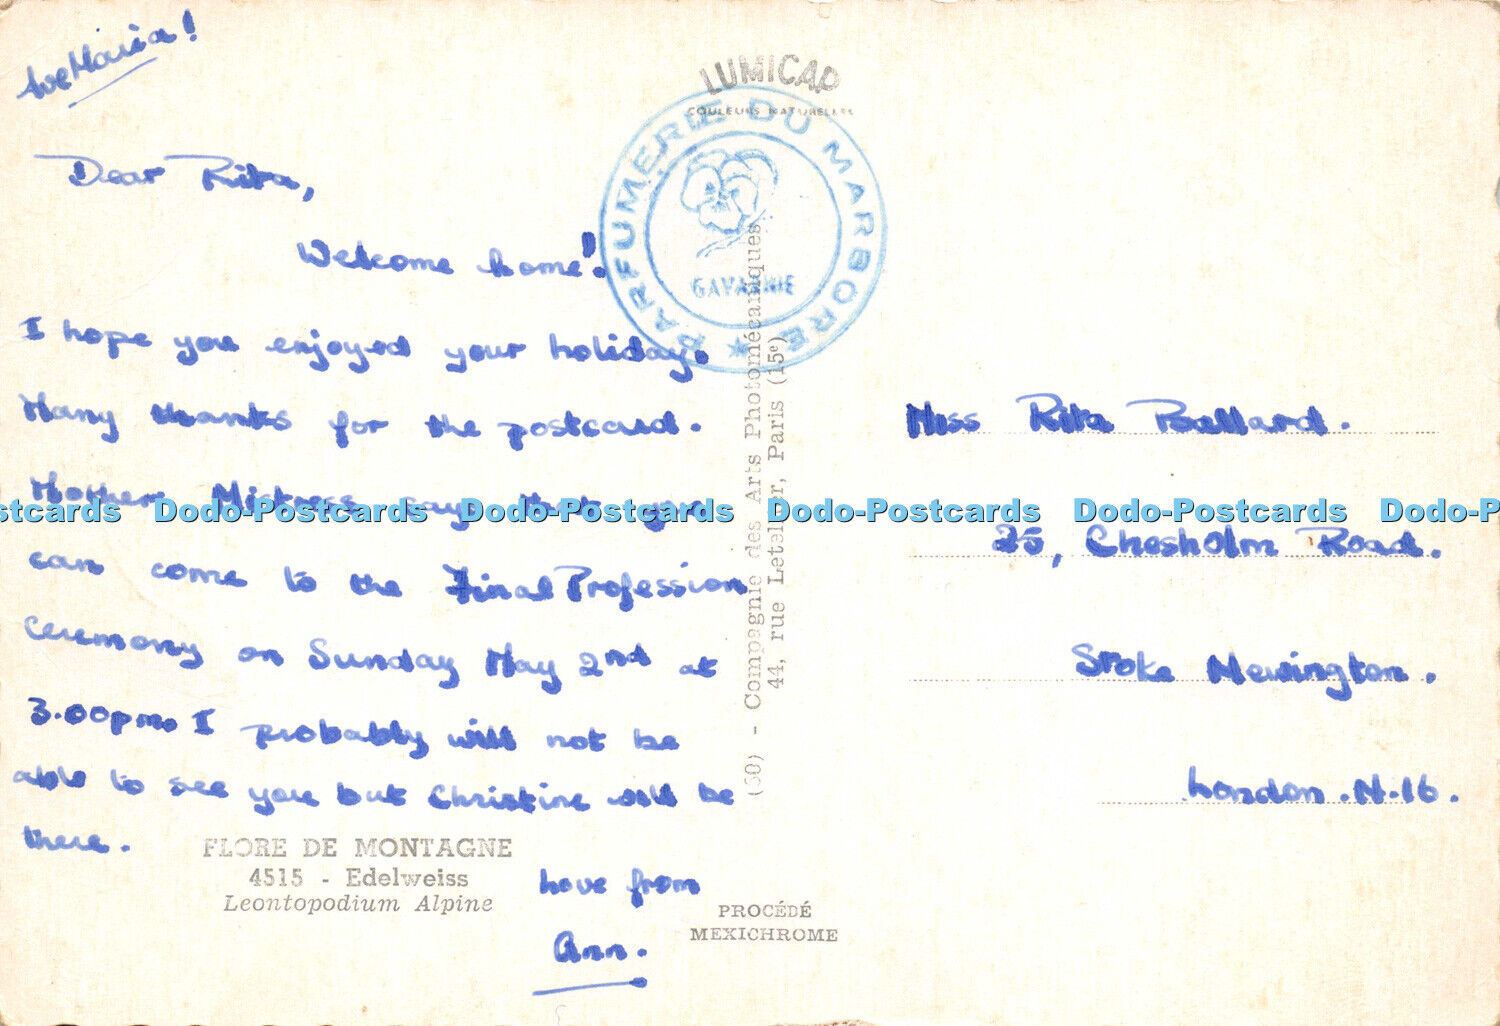 Ave Maria!
Dear Rita,
Welcome home!
I hope you enjoyed your holiday.
Many thanks for the postcard.
Mother Mistress says that you
can come to the Final Profession
Ceremony on Sunday May 2nd at
3.00pm. I probably will not be
able to see you but Christine will be
there.
Love from
Ann.
FLORE DE MONTAGNE
4515 - Edelweiss
Leontopodium Alpine
LUMICAP
COULEURS NATURELLES
PARFUMERIE DU MARBORE
GAVARNIE
(60) - Compagnie des Arts Photomécaniques
44, rue Letellier, Paris (15e)
PROCÉDÉ
MEXICHROME
Miss Rita Ballard.
25, Chesholm Road.
Stoke Newington.
London. N.16.
Dodo-Postcards Dodo-Postcards Dodo-Postcards Dodo-Postcards